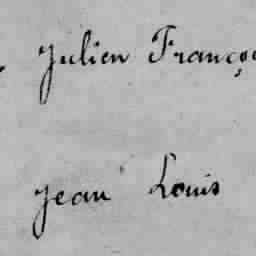 Julien Françoi
Jean Louis